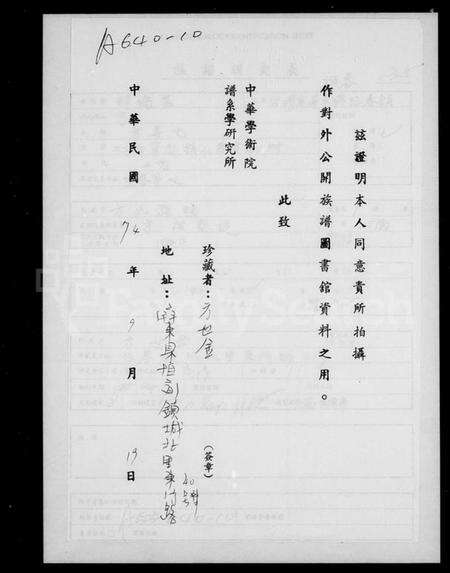 A640-10
茲證明本人同意貴所拍攝
作對外公開族譜圖書館資料之用。
此致
中華學術院
譜系學研究所
珍藏者：方世金 (簽章)
地址：屏東縣恒春鎮城北里東門路
中華民國 74 年 9 月 19 日